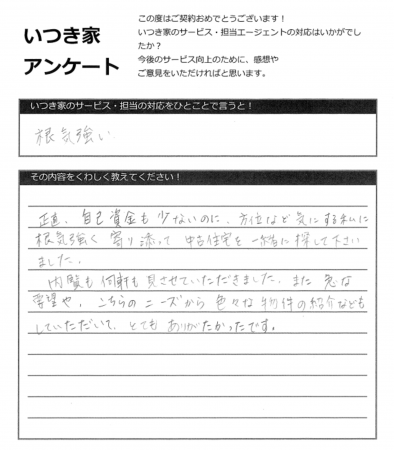 いつき家
アンケート
この度はご契約おめでとうございます！
いつき家のサービス・担当エージェントの対応はいかがでし
たか？
今後のサービス向上のために、感想や
ご意見をいただければと思います。
いつき家のサービス・担当の対応をひとことで言うと！
根気強い
その内容をくわしく教えてください！
正直、自己資金も少ないのに、方位など気にする私に
根気強く寄り添って中古住宅を一緒に探して下さい
ました。
内覧も何軒も見させていただきました。また急な
要望や、こちらのニーズから色々な物件の紹介なども
していただいて、とてもありがたかったです。